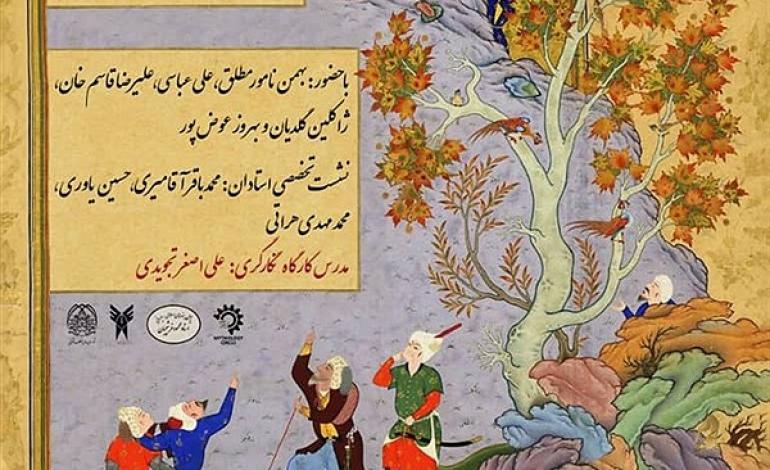 با حضور: بهمن نامور مطلق، علی عباسی، علیرضا قاسم خان،
ژاکلین گلدیان و بهروز عوض پور
نشست تخصصی استادان: محمدباقر آقامیری، حسین یاوری،
محمد مهدی هراتی
مدرس کارگاه نگارگری: علی اصغر تجویدی
MYTHOLOGY
CIRCLE